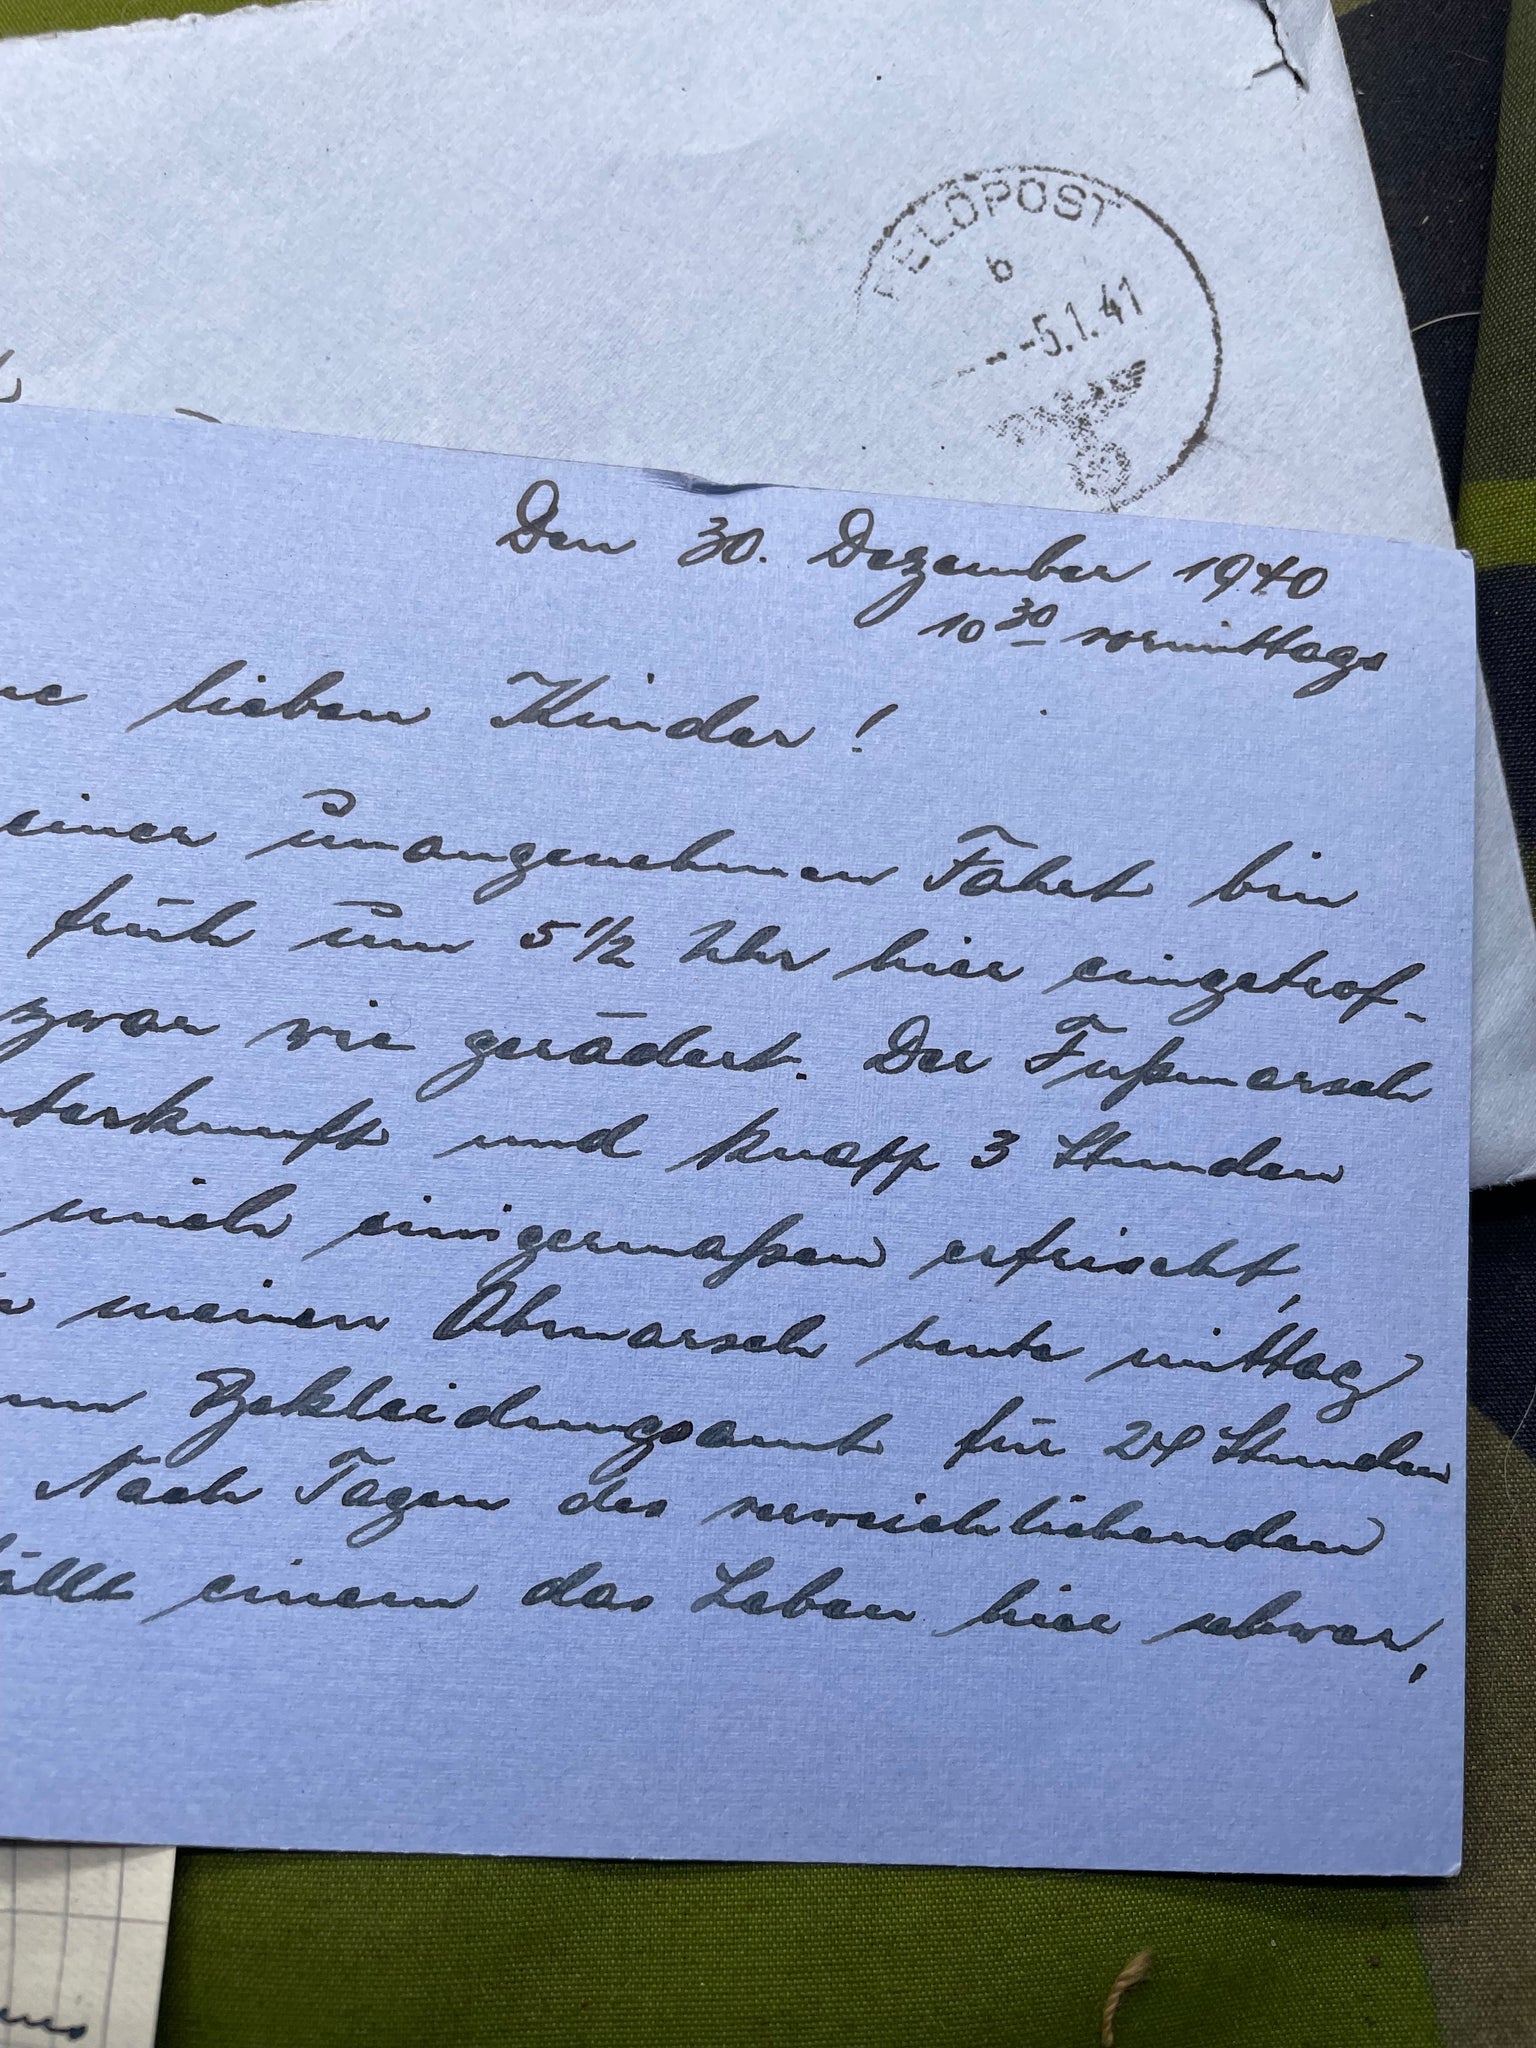 FELDPOST
b
--5.1.41
Den 30. Dezember 1940
10 30 vormittags
lieben Kinder!
einer unangenehmen Fahrt bin
früh um 5 1/2 Uhr hier eingetrof-
zwar wie gerädert. Der Fußmarsch
terkunft und knapp 3 Stunden
mich einigermaßen erfrischt,
meinen Abmarsch heute mittag
Bekleidungsamt für 24 Stunden
Nach Tagen des verweichlichenden
ällt einem das Leben hier schwer,